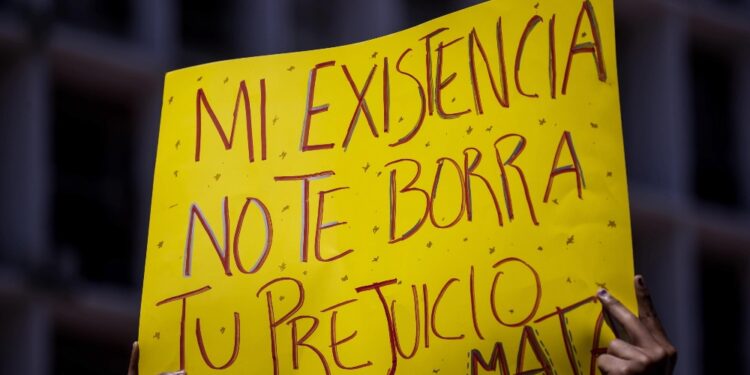 MI EXISTENCIA
NO TE BORRA
TU PREJUICIO
MATA